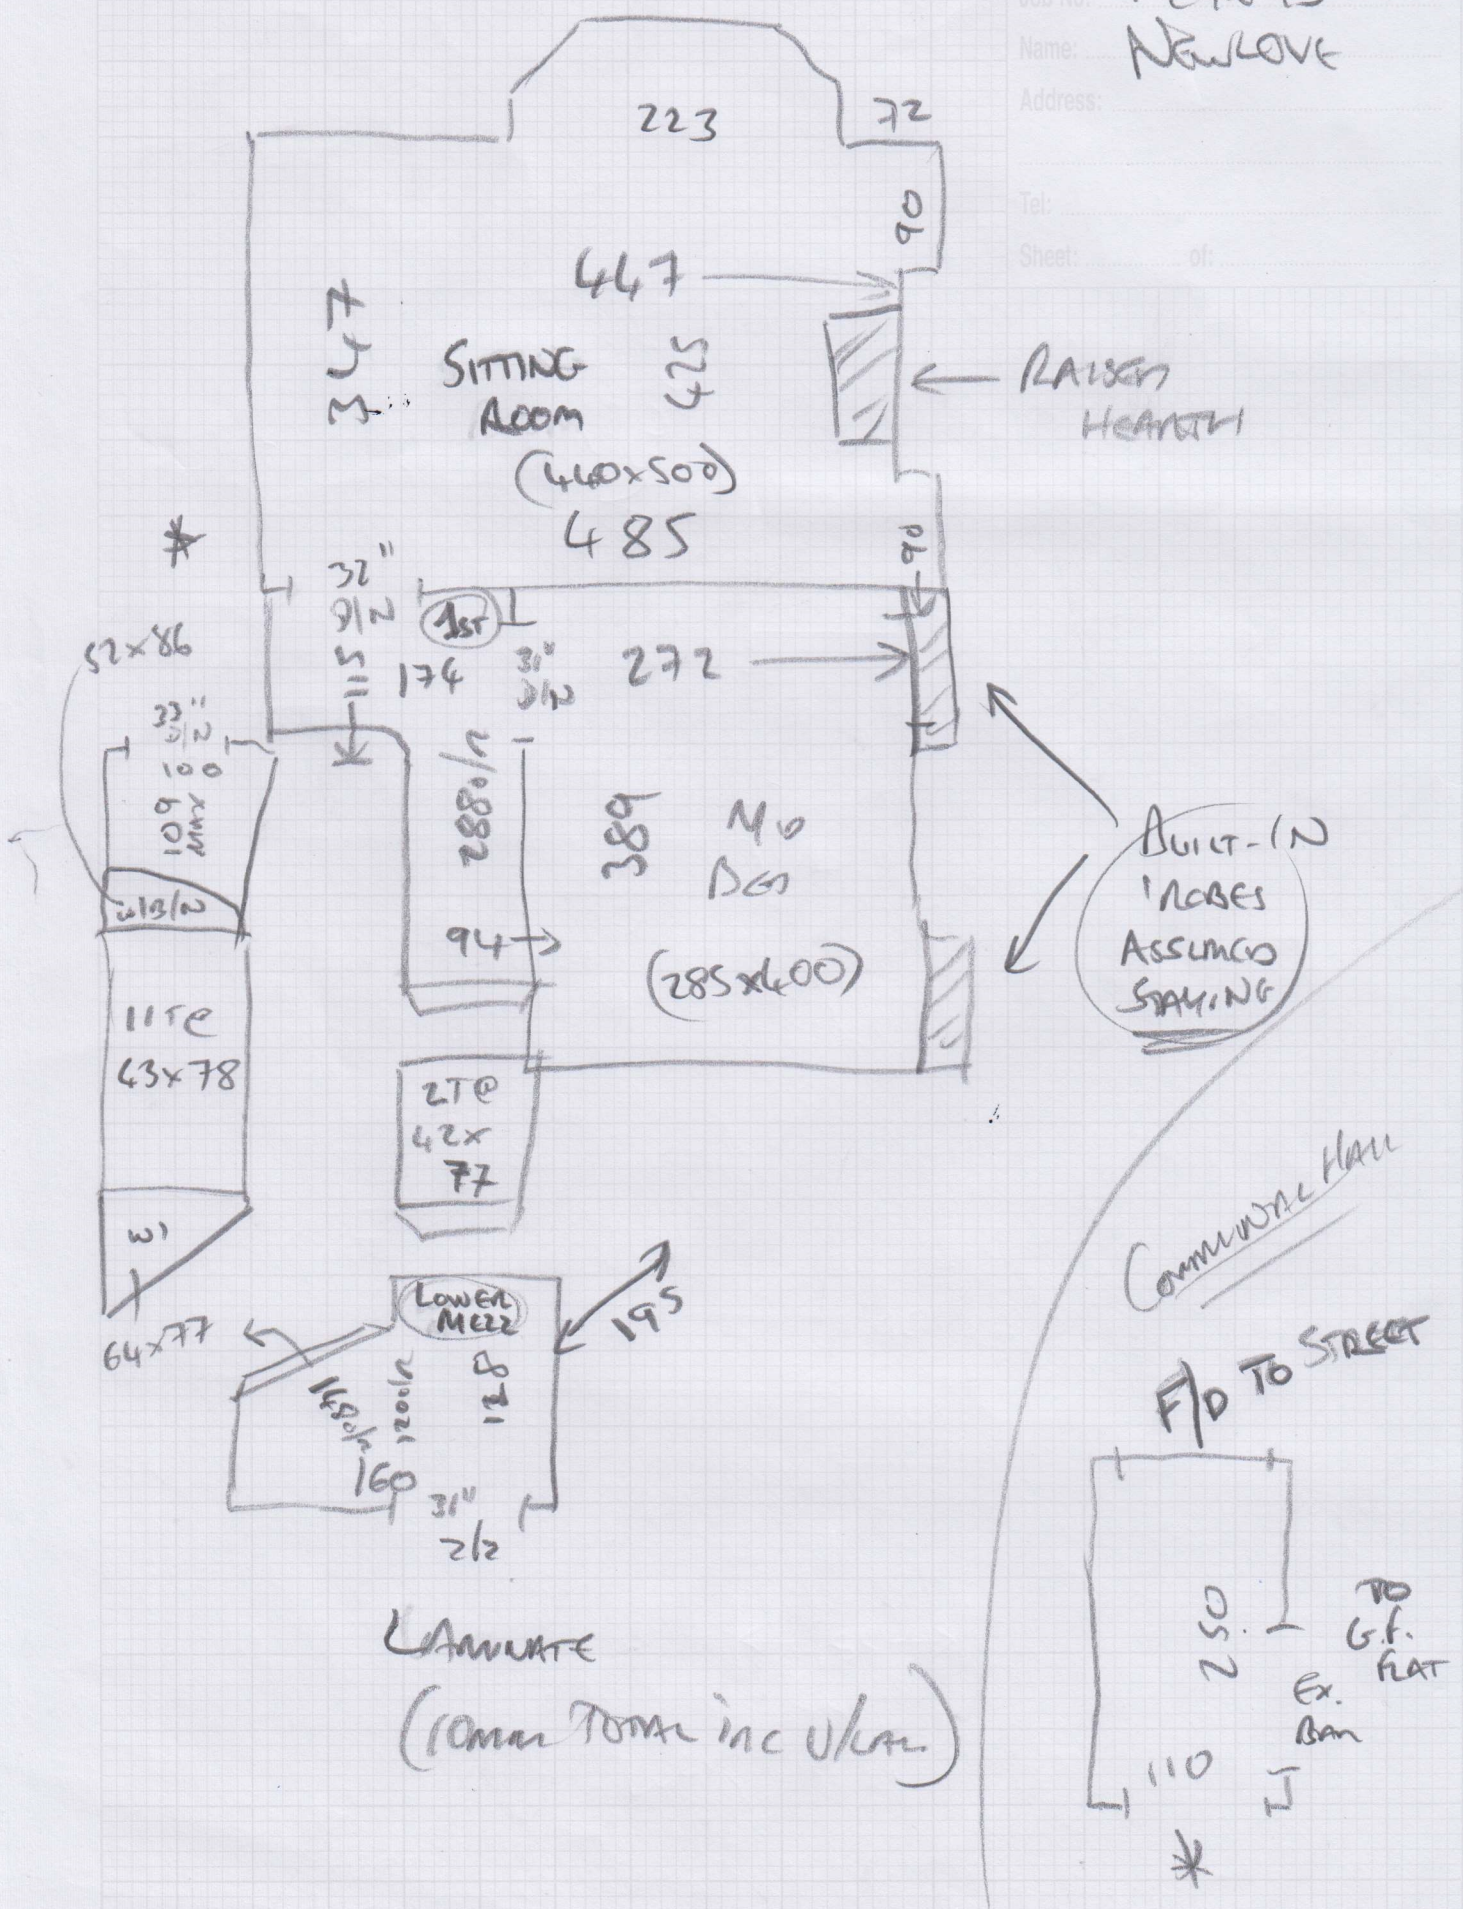 Job No:
Name: NEWLOVE
Address:
Tel:
Sheet: of:
223
72
90
447
347
SITTING
ROOM
425
(440x500)
485
RAISED
HEARTH
90
*
32"
D/N
1ST
115
174
31"
D/N
272
52x86
33"
D/N
100
109
MAX
W/B/N
2880/n
389
MD
BED
94
(285x400)
BUILT-IN
'ROBES
ASSUMED
STAYING
11T@
43x78
2T@
42x
77
W1
64x77
LOWER
MEZZ
195
1480/n
1200/n
128
160
31"
Z/Z
LAMINATE
(10mm TOTAL inc U/LAY)
COMMUNAL HALL
F/D TO STREET
250
TO
G.F.
FLAT
EX.
BAR
110
*